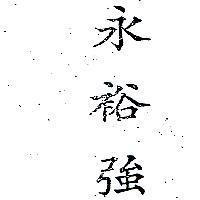 永裕強